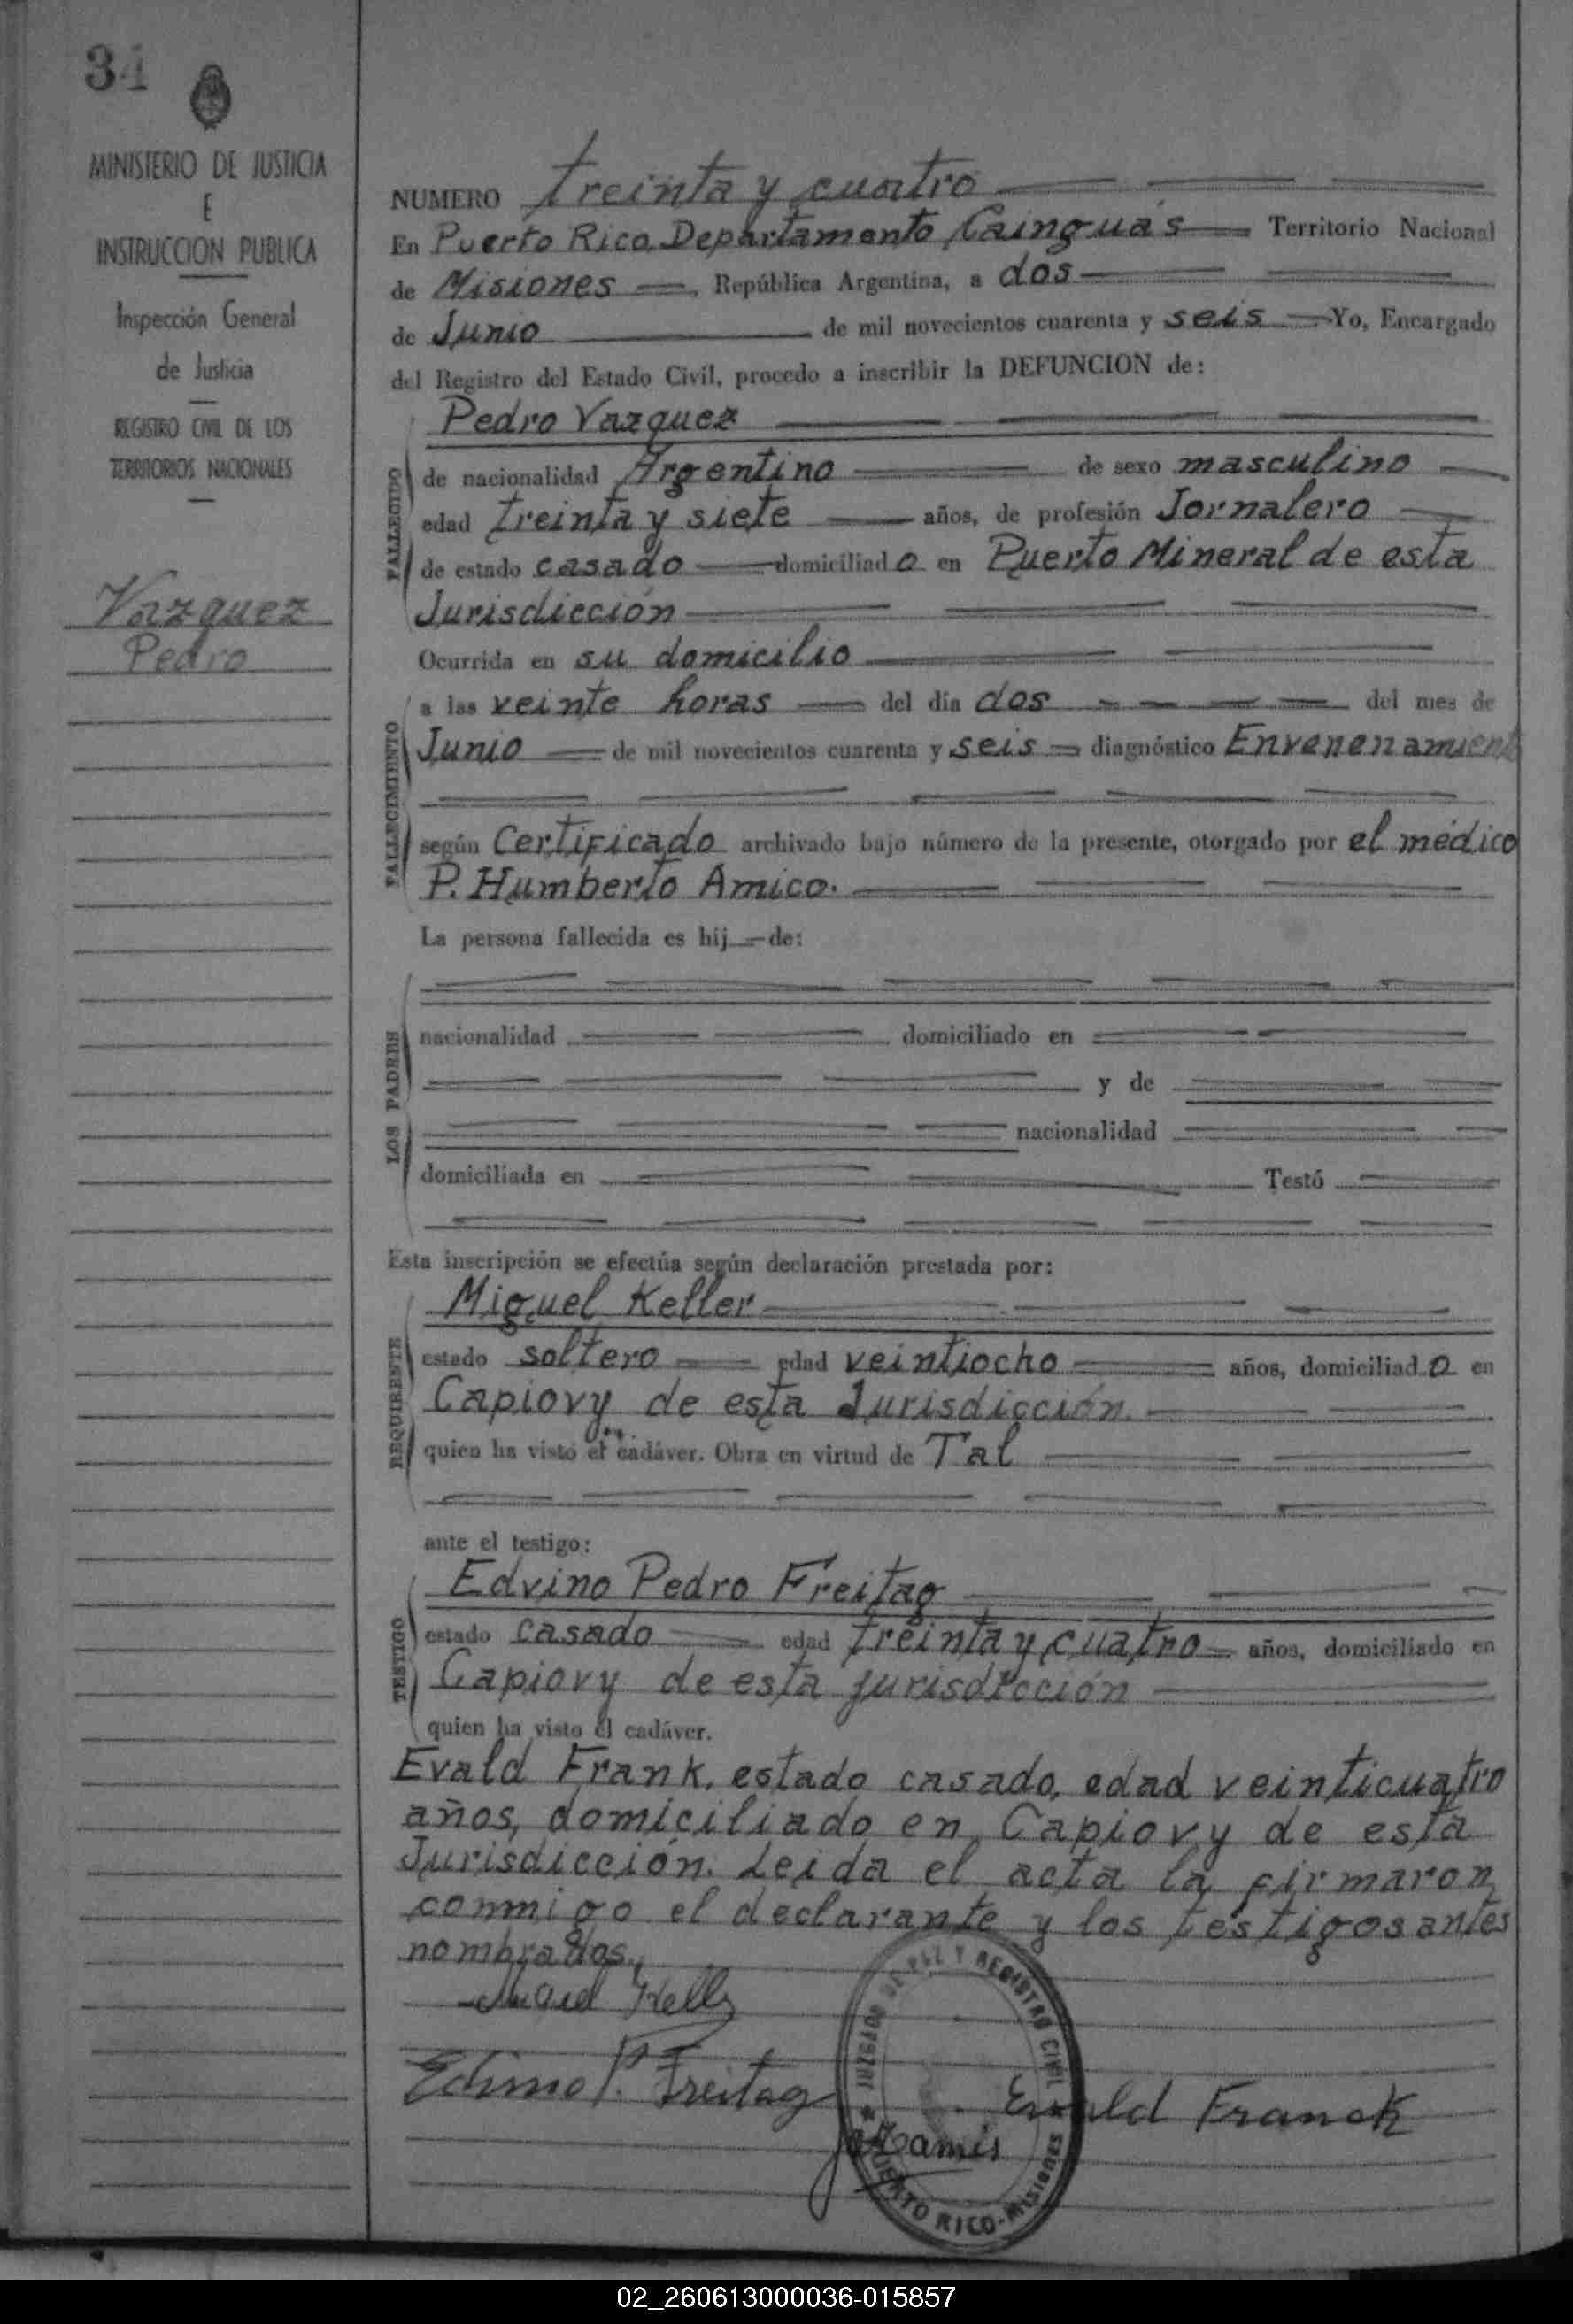 34
MINISTERIO DE JUSTICIA
E
INSTRUCCION PUBLICA
Inspección General
de Justicia
REGISTRO CIVIL DE LOS
TERRITORIOS NACIONALES
Vazquez
Pedro
NUMERO treinta y cuatro
En Puerto Rico, Departamento Cainguás Territorio Nacional
de Misiones República Argentina, a dos
de Junio de mil novecientos cuarenta y seis Yo, Encargado
del Registro del Estado Civil, procedo a inscribir la DEFUNCION de:
Pedro Vazquez
FALLECIDO
de nacionalidad Argentino de sexo masculino
edad treinta y siete años, de profesión Jornalero
de estado casado domiciliado en Puerto Mineral de esta
Jurisdicción
Ocurrida en su domicilio
FALLECIMIENTO
a las veinte horas del día dos del mes de
Junio de mil novecientos cuarenta y seis diagnóstico Envenenamient
según Certificado archivado bajo número de la presente, otorgado por el médico
P. Humberto Amico.
La persona fallecida es hij de:
LOS PADRES
nacionalidad domiciliado en
y de
nacionalidad
domiciliada en Testó
Esta inscripción se efectúa según declaración prestada por:
Miguel Keller
REQUIRENTE
estado soltero edad veintiocho años, domiciliado en
Capiovy de esta Jurisdicción.
quien ha visto el cadáver. Obra en virtud de Tal
ante el testigo:
Edvino Pedro Freitag
TESTIGO
estado casado edad treinta y cuatro años, domiciliado en
Capiovy de esta jurisdicción
quien ha visto el cadáver.
Evald Frank, estado casado, edad veinticuatro
años, domiciliado en Capiovy de esta
Jurisdicción. Leida el acta la firmaron
conmigo el declarante y los testigos antes
nombrados.,
Edvino P. Freitag
Ewald Franck
JUZGADO DE PAZ Y REGISTRO CIVIL
PUERTO RICO - Misiones
02_260613000036-015857